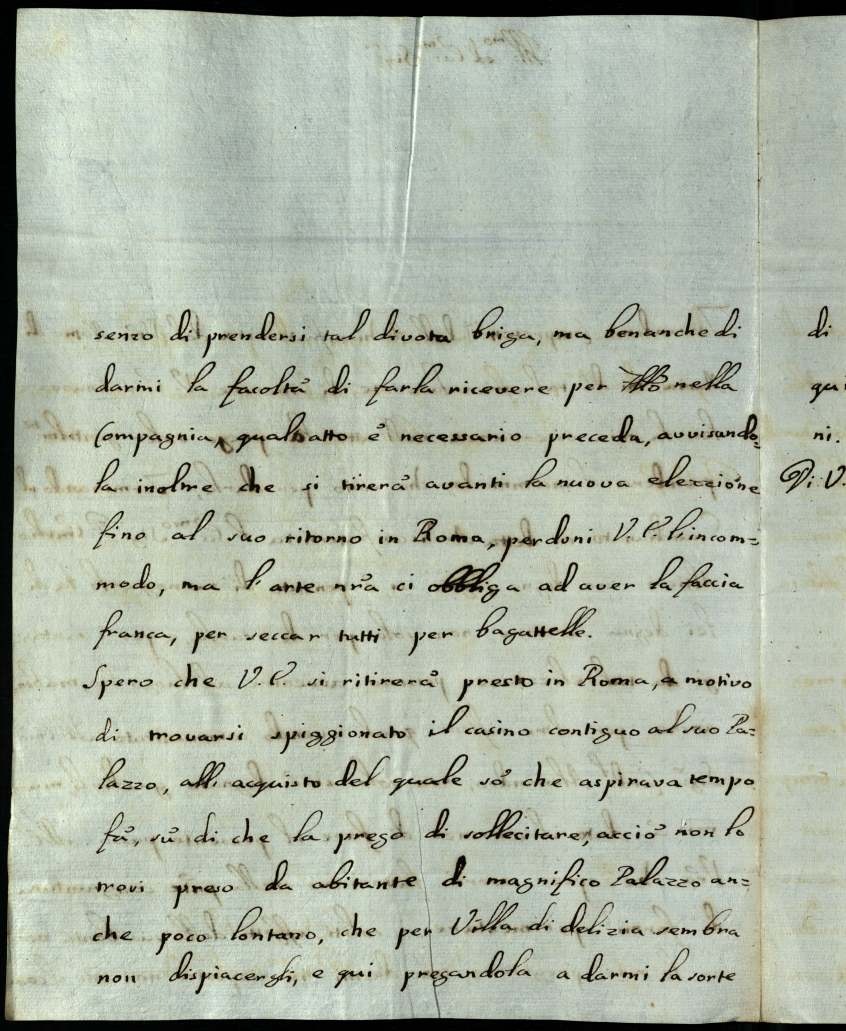 senso di prendersi tal divota briga, ma benanche di
darmi la facoltà di farla ricevere per nella
Compagnia, qual'atto è necessario preceda, avvisando=
la inoltre che si tirerà avanti la nuova elezzione
fino al suo ritorno in Roma, perdoni V. E. l'incom=
modo, ma l'arte nr̃a ci obbliga ad aver la faccia
franca, per seccar tutti per bagattelle.
Spero che V. E. si ritirerà presto in Roma, a motivo
di trovarsi spiggionato il casino contiguo al suo Pa=
lazzo, all'acquisto del quale sò che aspirava tempo
fà, sù di che la prego di sollecitare, acciò non lo
trovi preso da abitante di magnifico Palazzo an=
che poco lontano, che per Villa di delizia sembra
non dispiacergli, e qui pregandola a darmi la sorte
di
qui
ni.
Di V.